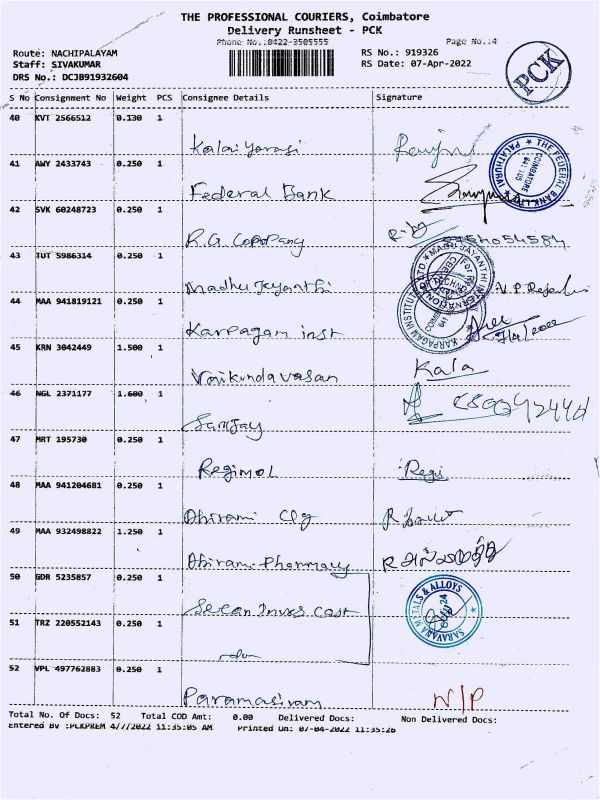 THE PROFESSIONAL COURIERS, Coimbatore
Delivery Runsheet - PCK
Phone No.:0422-3505555 Page No.:4
Route: NACHIPALAYAM RS No.: 919326
Staff: SIVAKUMAR RS Date: 07-Apr-2022
DRS No.: DC3B91932604
PCK
S No Consignment No Weight PCS Consignee Details Signature
40 KVT 2566512 0.130 1
Kalai Yarasi
41 AWY 2433743 0.250 1
Federal Bank
THE FEDERAL BANK LTD PALATHURAI COIMBATORE 641 105
42 SVK 60248723 0.250 1
R.G. Copopany
43 TUT 5986314 0.250 1
Madhu Jeyanthi V. P.
MADHU JAYANTHI INTERNATIONAL
44 MAA 941819121 0.250 1
Karpagam inst
KARPAGAM INSTITUTE TECHNO
45 KRN 3042449 1.500 1
Vaikundavasan Kala
46 NGL 2371177 1.600 1
Sanjay
47 MRT 195730 0.250 1
Regimol Regi
48 MAA 941204681 0.250 1
Abirami Clg
49 MAA 932498822 1.250 1
Abirami Pharmacy
50 GDR 5235857 0.250 1
Secan Inves Cast
SARAVANA METALS & ALLOYS
51 TRZ 220552143 0.250 1
52 VPL 497762883 0.250 1
Paramasivam N/P
Total No. Of Docs: 52 Total COD Amt: 0.00 Delivered Docs: Non Delivered Docs:
Entered By :PCKPREM 4/7/2022 11:35:05 AM Printed On: 07-04-2022 11:35:26